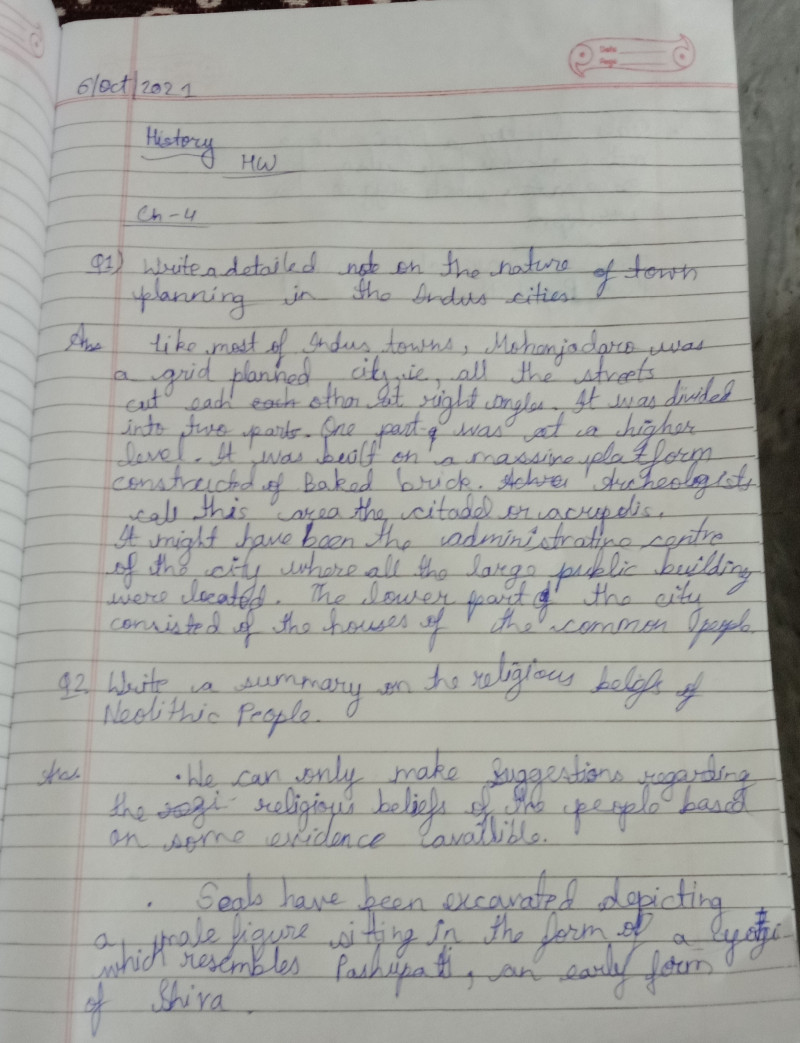 Date
Page
6/Oct/2021
History
HW
Ch-4
Q1) Write a detailed note on the nature of town
planning in the Indus cities.
Ans like most of Indus towns, Mohenjadaro was
a grid planned city, ie, all the streets
cut each each other at right angles. It was divided
into two parts. One part was at a higher
level. It was built on a massive platform
constructed of Baked brick. Archeologists
call this area the citadel or acrupolis.
It might have been the administrative centre
of the city where all the large public building
were located. The lower part of the city
consisted of the houses of the common people.
Q2. Write a summary on the religious beliefs of
Neolithic People.
Ans. • We can only make suggestions regarding
the religious beliefs of the people based
on some evidence availlible.
• Seals have been excavated depicting
a male figure sitting in the form of a yogi
which resembles Pashupati, an early form
of Shiva.